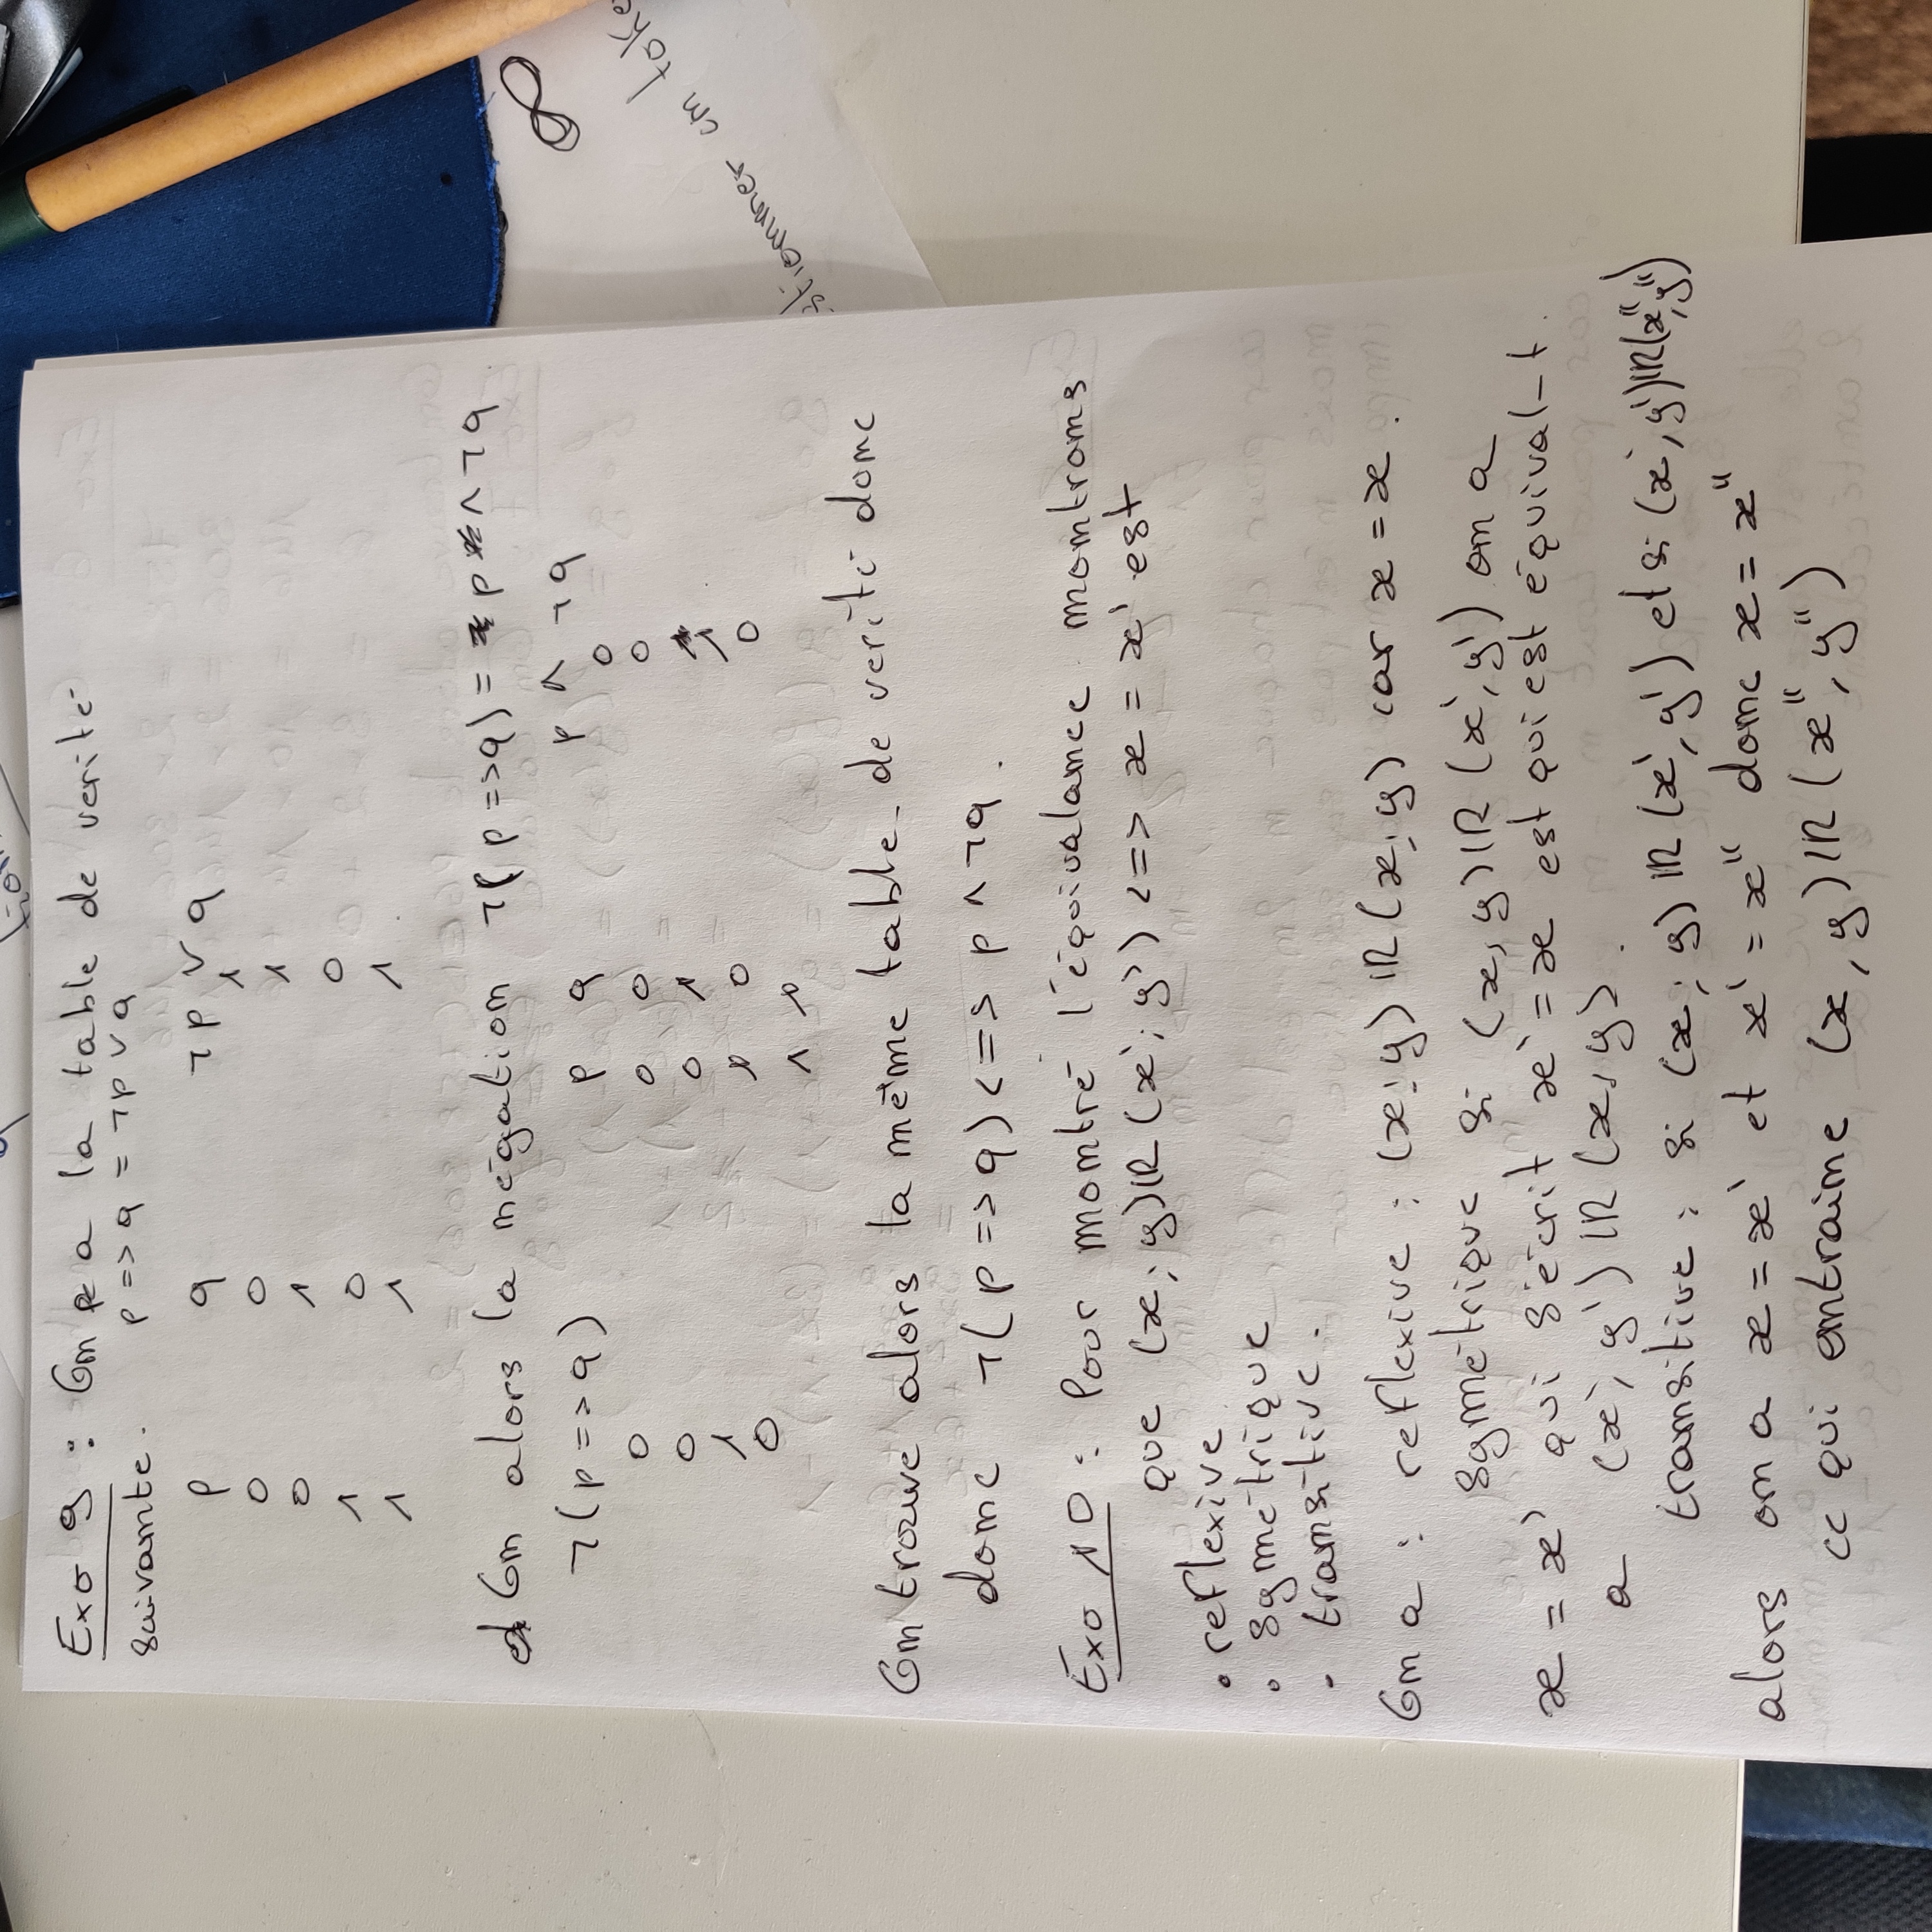 Exo 9 : On a la table de verité
suivante. p => q = ¬p ∨ q
p q ¬p ∨ q
0 0 1
0 1 1
1 0 0
1 1 1
On alors la négation ¬(p => q) = p ∧ ¬q.
¬(p => q) p q p ∧ ¬q
0 0 0 0
0 0 1 0
1 1 0 1
0 1 1 0
On trouve alors la même table de verité donc
donc ¬(p => q) <=> p ∧ ¬q.
Exo 10 : Pour montré l'équivalance montrons
que (x; y)ℝ(x'; y') <=> x = x' est
• reflexive
• symétrique
- transitive.
On a : reflexive : (x; y) ℝ (x; y) car x = x.
symétrique si (x, y)ℝ(x', y') on a
x = x' qui s'écrit x' = x est qui est équival-t.
a (x', y') ℝ (x, y).
transitive : si (x; y) ℝ (x', y') et si (x', y')ℝ(x'', y'')
alors on a x = x' et x' = x'' donc x = x''
ce qui entraine (x, y)ℝ(x'', y'')
∞
stionner en toke